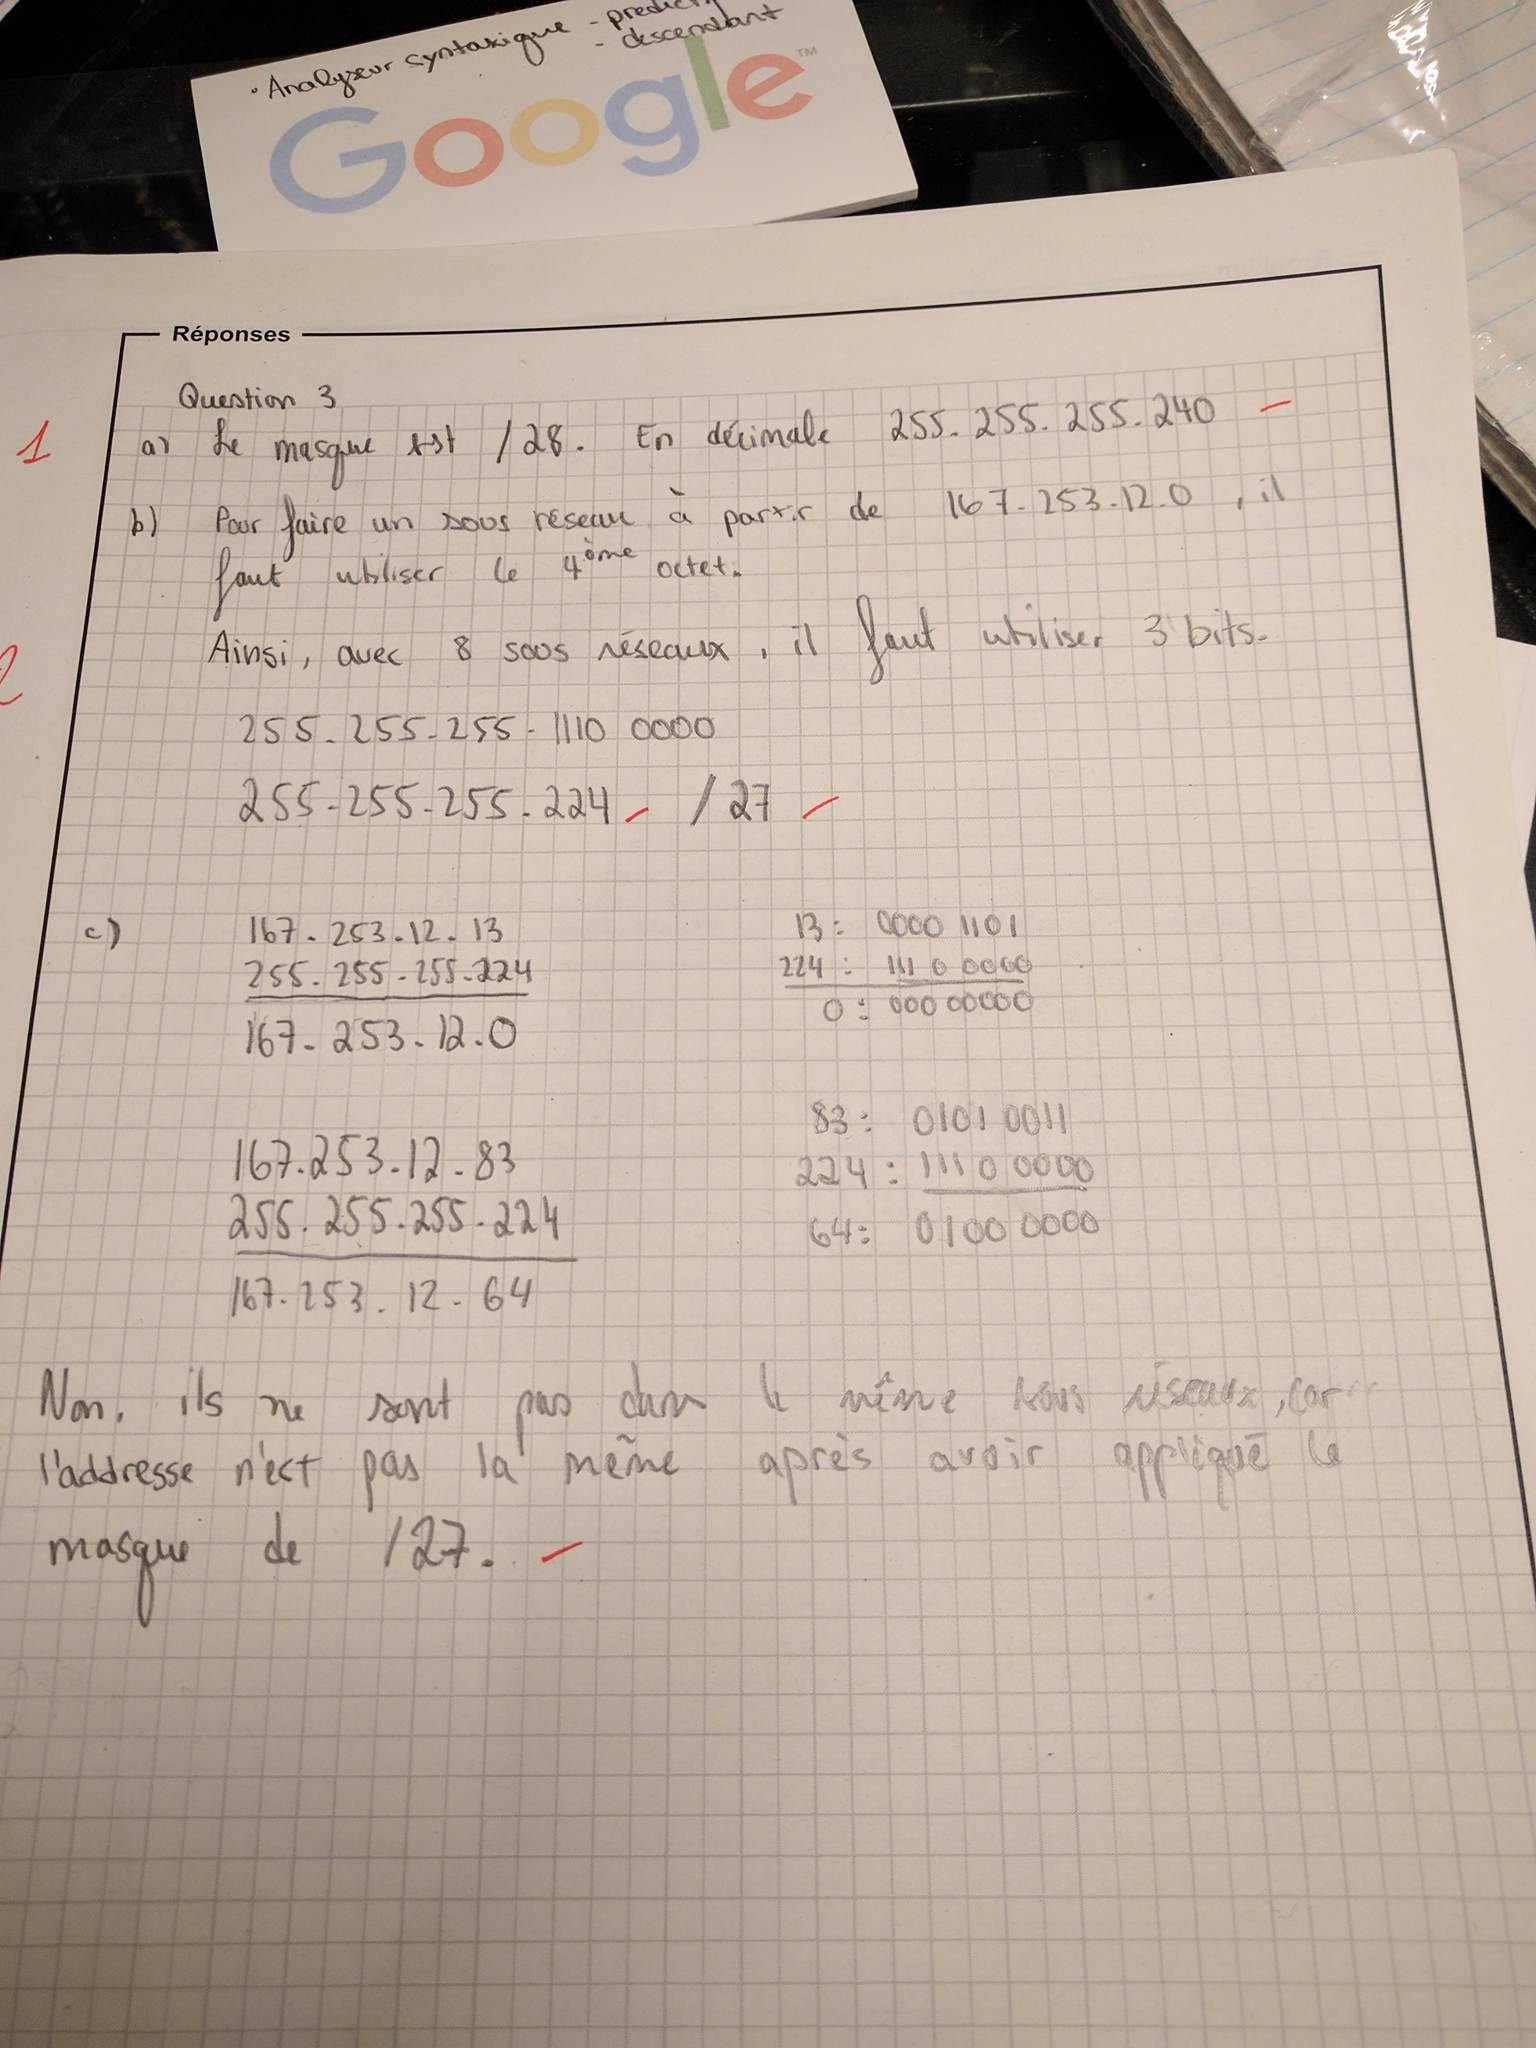 • Analyseur syntaxique - predictif
- descendant
Google™
Réponses
Question 3
1
a) Le masque est /28. En décimale 255.255.255.240
b) Pour faire un sous réseau à partir de 167.253.12.0, il
faut utiliser le 4ème octet.
2
Ainsi, avec 8 sous réseaux, il faut utiliser 3 bits.
255.255.255.1110 0000
255.255.255.224 /27
c) 167.253.12.13 13: 0000 1101
255.255.255.224 224: 1110 0000
167.253.12.0 0: 000 00000
167.253.12.83 83: 0101 0011
255.255.255.224 224: 1110 0000
167.253.12.64 64: 0100 0000
Non, ils ne sont pas dans le même sous réseaux, car
l'addresse n'est pas la même après avoir appliqué le
masque de /27.